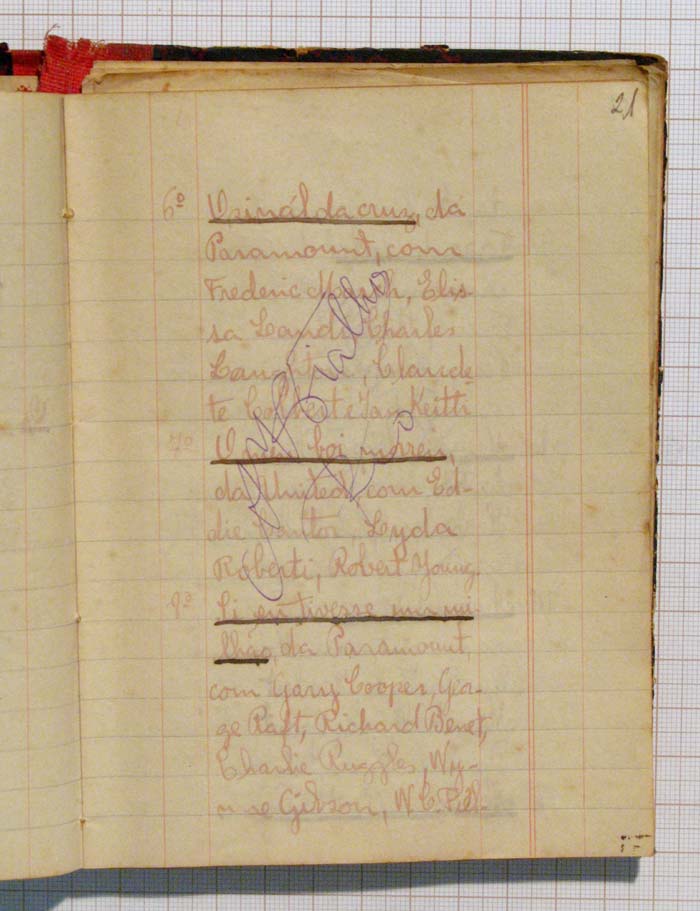 21
6º O sinál da cruz, da
Paramount, com
Frederic March, Elis-
sa Landi, Charles
Laughton, Claude
te Colbert e Ian Keitti
7º O meu boi morreu,
da United, com Ed-
die Cantor, Lyda
Roberti, Robert Young.
8º Si eu tivesse um mi-
lhão, da Paramount,
com Gary Cooper, Geor-
ge Raft, Richard Benet,
Charlie Ruggles, Wy-
nne Gibson, W. C. Fiel-